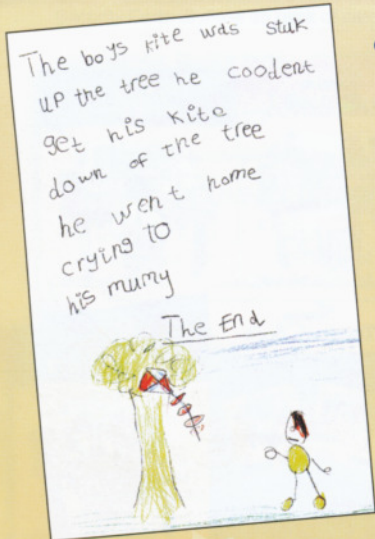 The boys kite was stuk
up the tree he coodent
get his kite
down of the tree
he went home
crying to
his mumy
The End